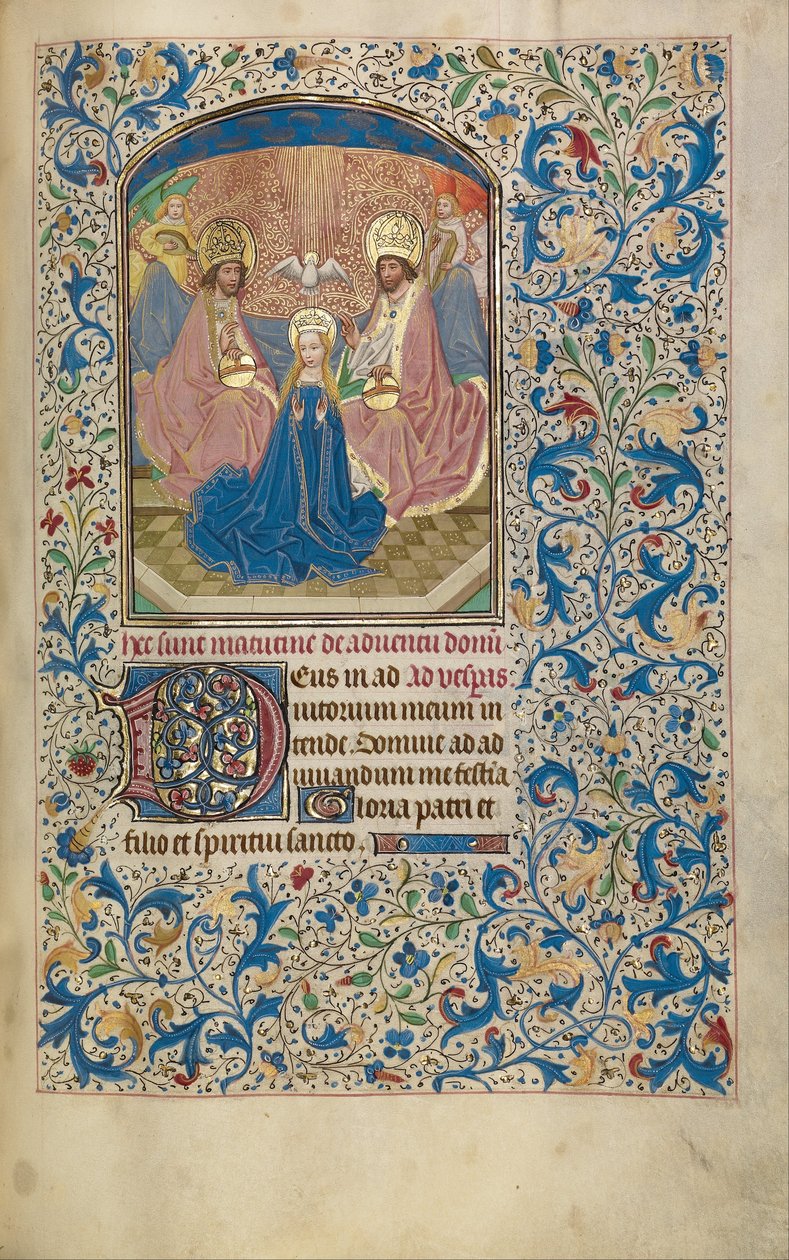 hec sunt matutine de aduentu domī
Deus in ad Ad vesp̄as
iutorium meum in
tende. Domine ad ad
iuuandum me festīa
Gloria patri et
filio et spiritui sancto.